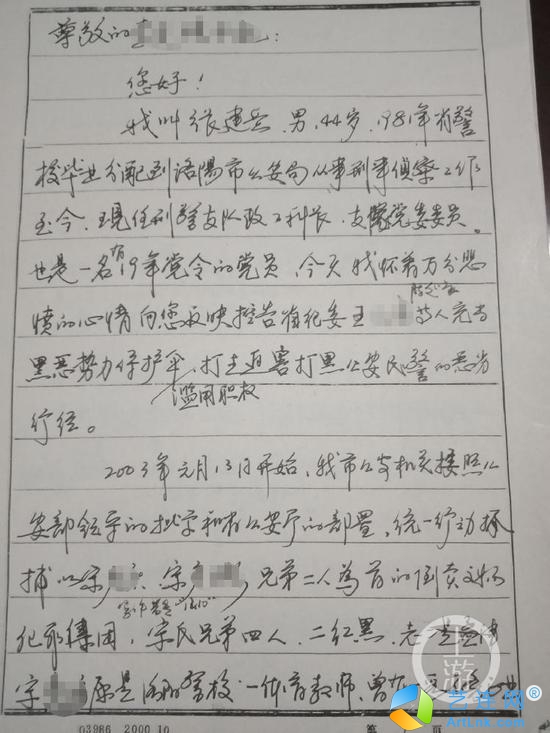 尊敬的
您好！
我叫张建岳，男，44岁，1981年省警
校毕业分配到洛阳市公安局从事刑事侦察工作
至今，现任刑警支队政工科长，支队党委委员。
也是一名有19年党令的党员，今天我怀着万分悲
愤的心情向您反映控告省纪委王 等人充当
黑恶势力保护伞，打击迫害打黑公安民警的恶劣
滥用职权
行径。
2003年元月13日开始，我市公安机关按照公
安部领导的批字和省公安厅的部署，统一行动抓
捕以宋 宋 兄弟二人为首的倒卖文物
犯罪集团，宋氏兄弟四人，二红黑，老
宋 原是洛阳警校一体育教师，曾
上游
艺链网
Artlink8.com
03986 2000.10 第 页